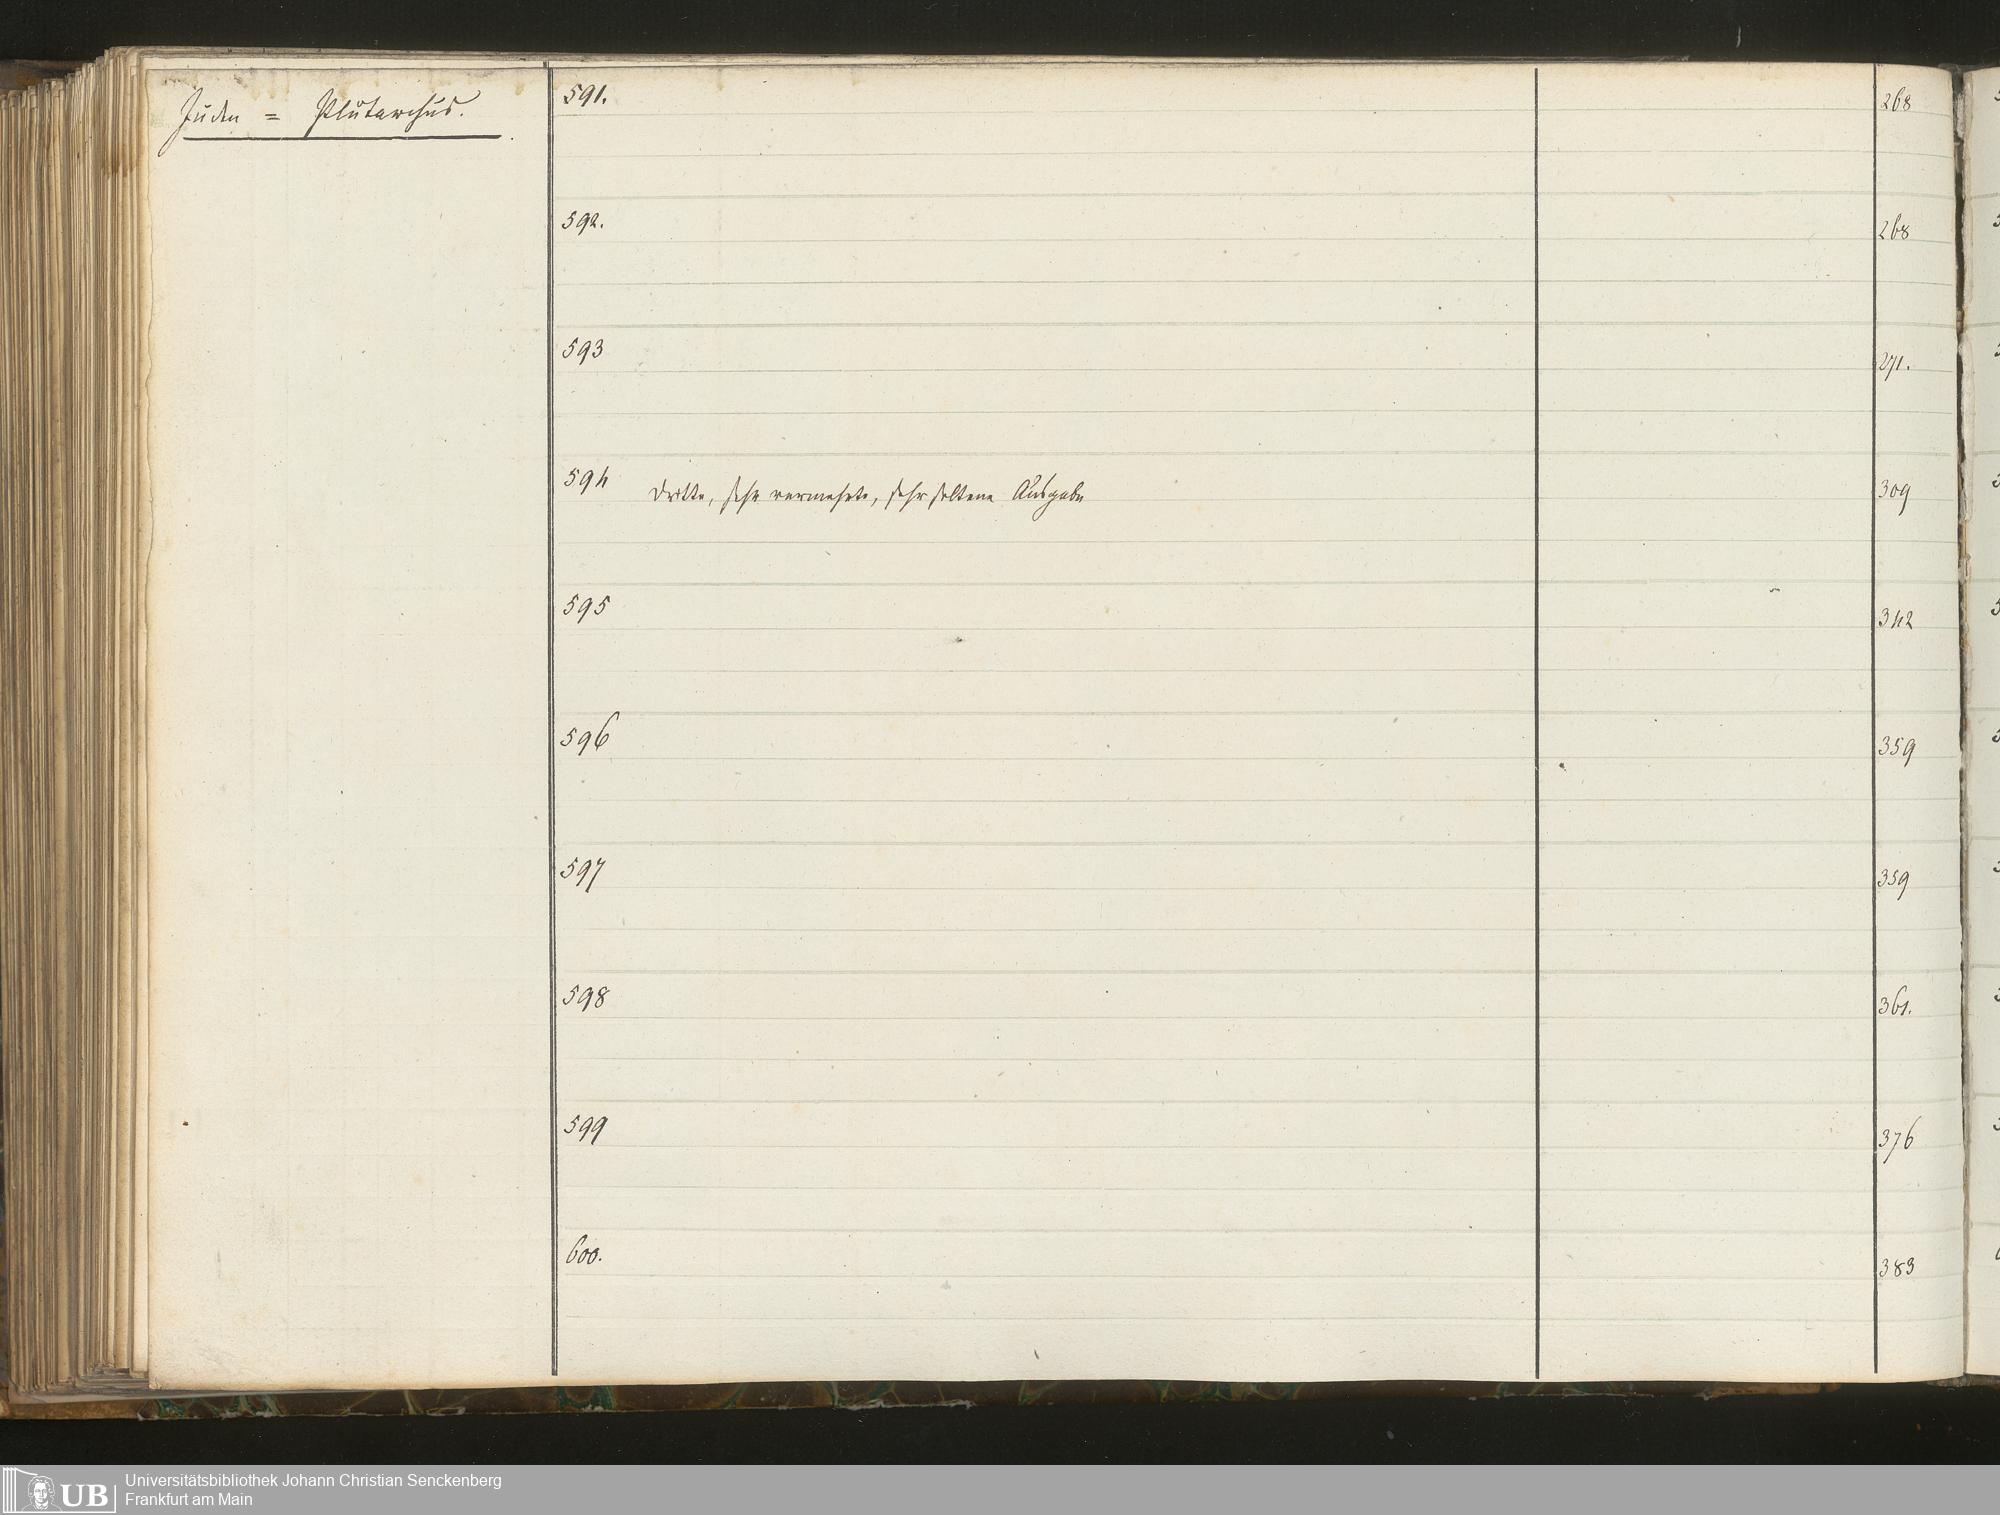 Juden = Plutarchus.
591. 268
592. 268
593 271.
594 dritte, sehr vermehrte, sehr seltene Ausgabe 309
595 342
596 359
597 359
598 361.
599 376
600. 383
UB
Universitätsbibliothek Johann Christian Senckenberg
Frankfurt am Main